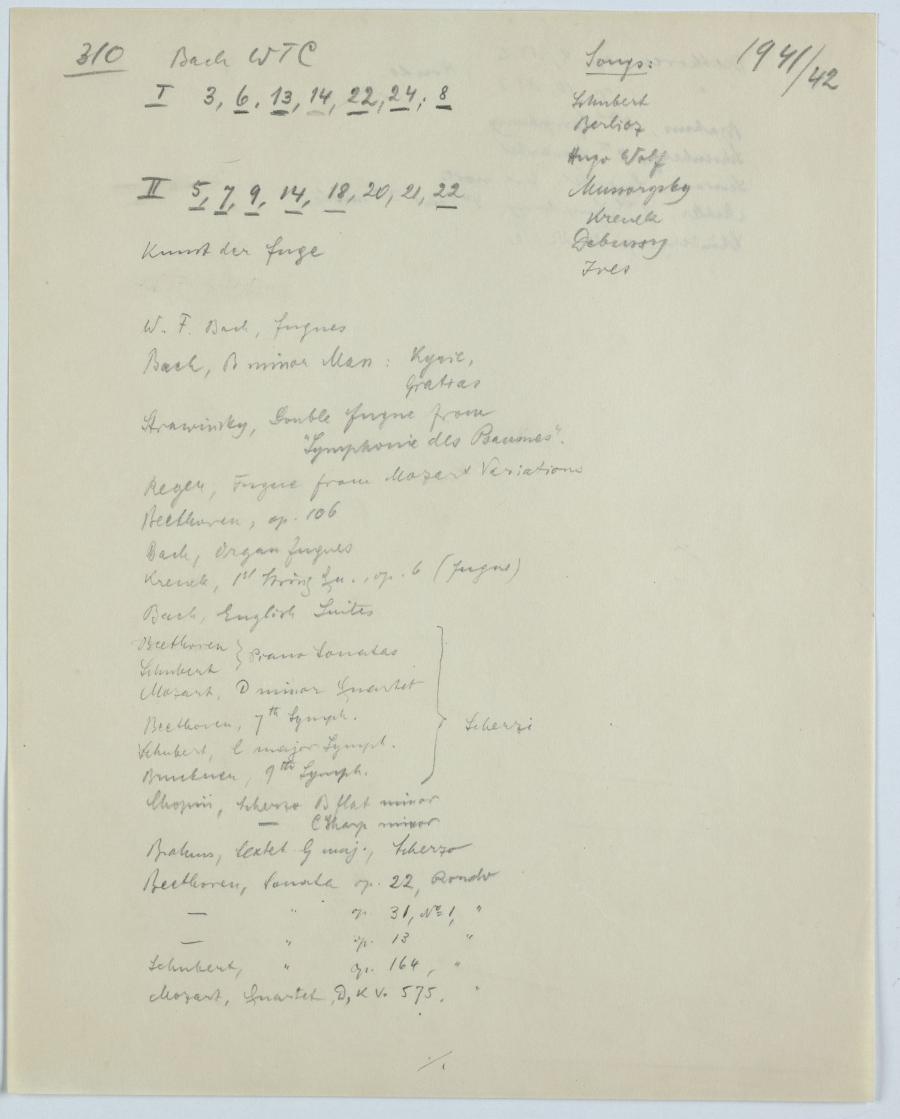 310 Bach WTC
I 3, 6, 13, 14, 22, 24; 8
II 5, 7, 9, 14, 18, 20, 21, 22
Kunst der Fuge
Songs:
Schubert
Berlioz
Hugo Wolf
Mussorgsky
Krenek
Debussy
Ives
1941/42
W. F. Bach, fugues
Bach, B minor Mass: Kyrie,
Gratias
Strawinsky, Double fugue from
"Symphonie des Psaumes".
Reger, Fugue from Mozart Variations
Beethoven, op. 106
Bach, Organ fugues
Krenek, 1st String Qu., op. 6 (fugue)
Bach, English Suites
Beethoven } Piano Sonatas
Schubert
Mozart, D minor Quartet
Beethoven, 7th Symph.
Schubert, C major Symph.
Bruckner, 9th Symph.
} Scherzi
Chopin, Scherzo B flat minor
— C sharp minor
Brahms, Sextet G maj., Scherzo
Beethoven, Sonata op. 22, Rondo
— " op. 31, No 1, "
— " op. 13 "
Schubert, " op. 164, "
Mozart, Quartet, D, K.V. 575, "
./.